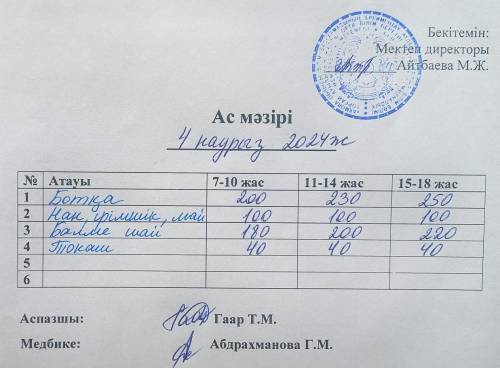 Бекітемін:
Мектеп директоры
Айтбаева М.Ж.
Ас мәзірі
4 наурыз 2024ж
№ Атауы 7-10 жас 11-14 жас 15-18 жас
1 Ботқа 200 230 250
2 Нан, ірімшік, май 100 100 100
3 Балмен шай 180 200 220
4 Тоқаш 40 40 40
5
6
Аспазшы: Гаар Т.М.
Медбике: Абдрахманова Г.М.